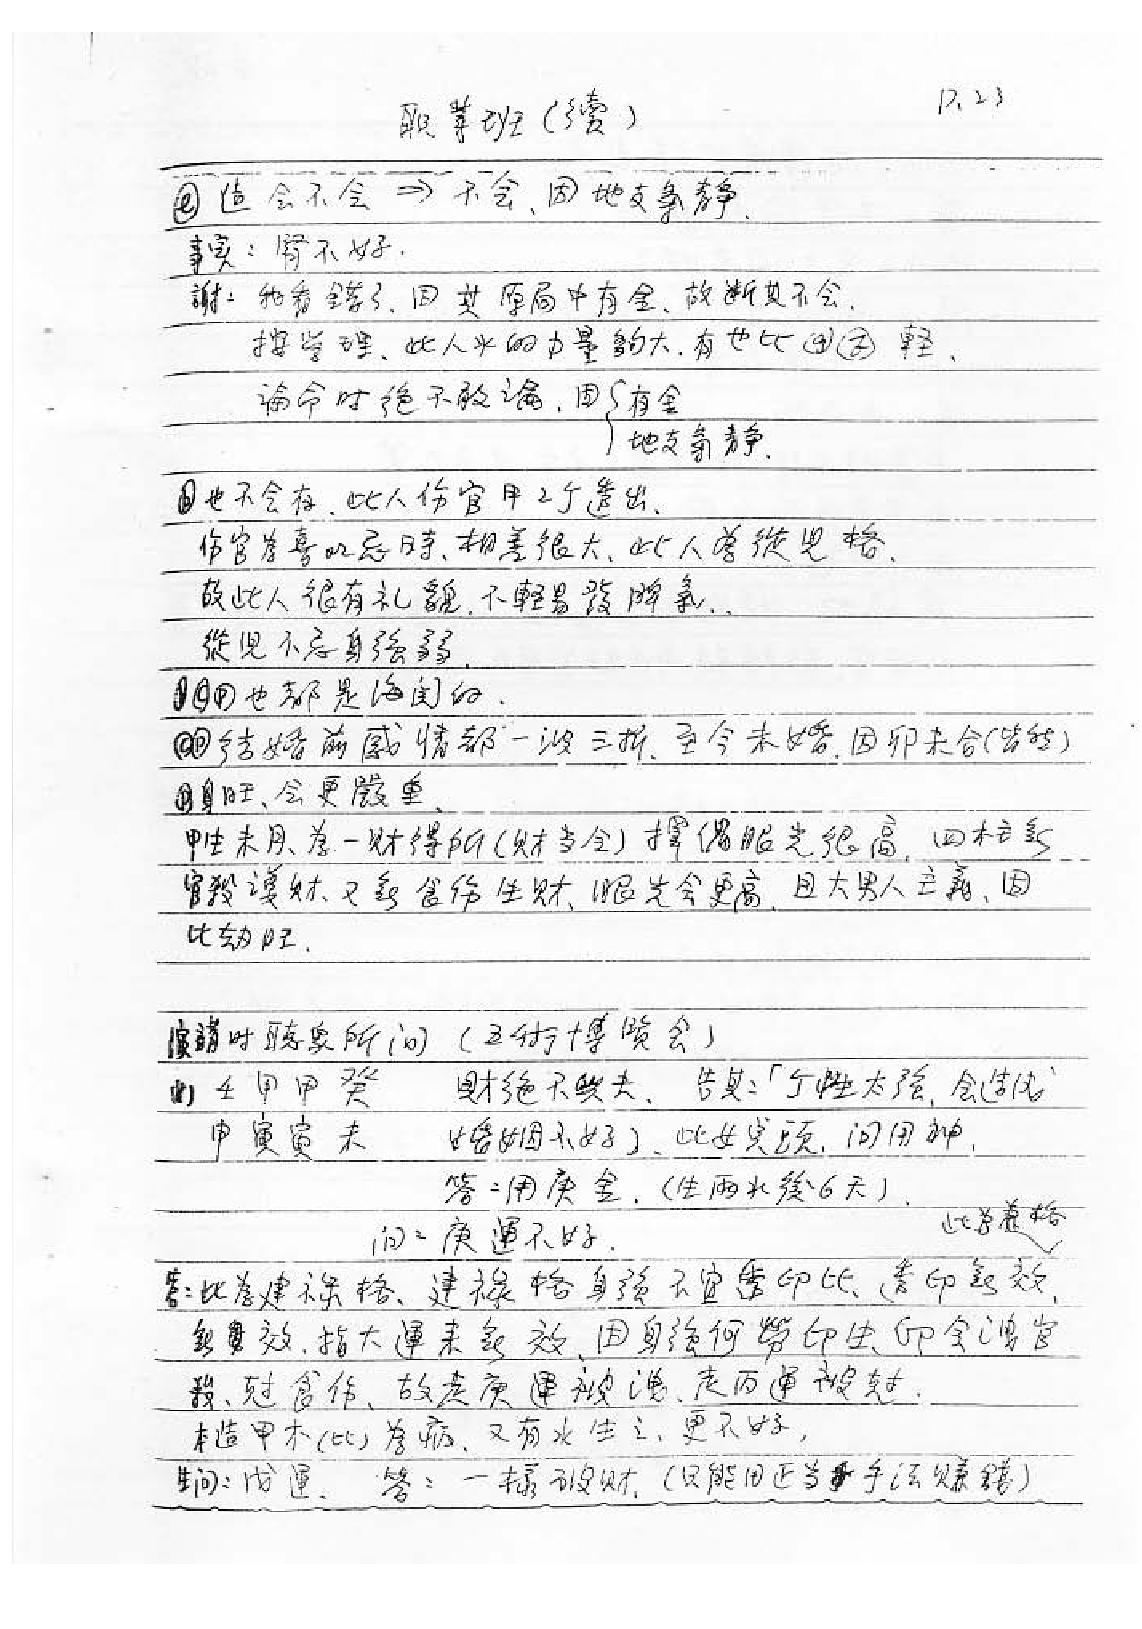 P.23
职業班(續)
造会不会 ⇒ 不会、因地支氣靜.
事实:腎不好.
謝:我看錯了、因其原局中有金、故断其不会.
按学理、此人水的力量夠大.有也比 輕、
論命时絕不敢論、因{有金
地支氣靜.
也不会有、此人伤官甲2个透出、
伤官為喜或忌時、相差很大、此人為從児格、
故此人很有礼貌、不輕易發脾氣、
從児不忌身強弱.
也都是海関的.
結婚前感情都一波三折、至今未婚、因卯未合(皆然)
身旺、会更嚴重、
甲生未月、為一財得所(財当令)擇偶眼光很高、四柱無
官殺護財、又無食伤生財、眼光会更高、且大男人主義、因
比劫旺.
演講时聽衆所问(五術博覽会)
(1) 壬甲甲癸 財絕不缺失、告其:「个性太強,会造成
申寅寅未 婚姻不好」、此女点頭、问用神.
答:用庚金.(生雨水後6天)
问:庚運不好.
此為舊格
答:此為建祿格、建祿格身強不宜透印比、透印無效
無效、指大運来無效、因身強何勞印生、印会洩官
殺、尅食伤、故走庚運被洩、走丙運被尅.
本造甲木(比)為病、又有水生之、更不好,
生问:戊運. 答:一樣破財.(只能用正当手法賺錢)